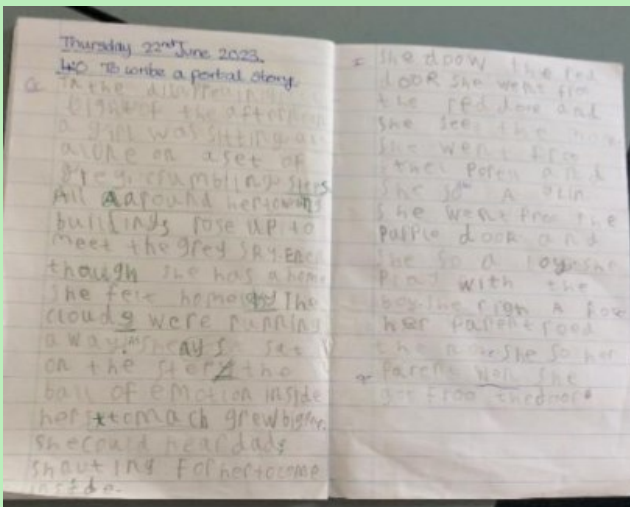 Thursday 22nd June 2023.
LO To write a portal story.
In the
light of the afternoon
a girl was sitting all
alone on a set of
grey crumbling steps
All Aaround her towns
buildings rose up to
meet the grey sky. Even
though she has a home
she felt home The
clouds were running
away. sat
on the step the
ball of emotion inside
her stomach grew bigger.
She could hear dads
shouting for her to come
inside.
She doow the red
dooR She went froo
the red door and
She sees the
She went froo
the Portu and
She so A
She went froo the
PurPle dooR and
She so a boy she
Plad with the
boy. she A
her Parent
the she so her
Parent won she
got froo the door